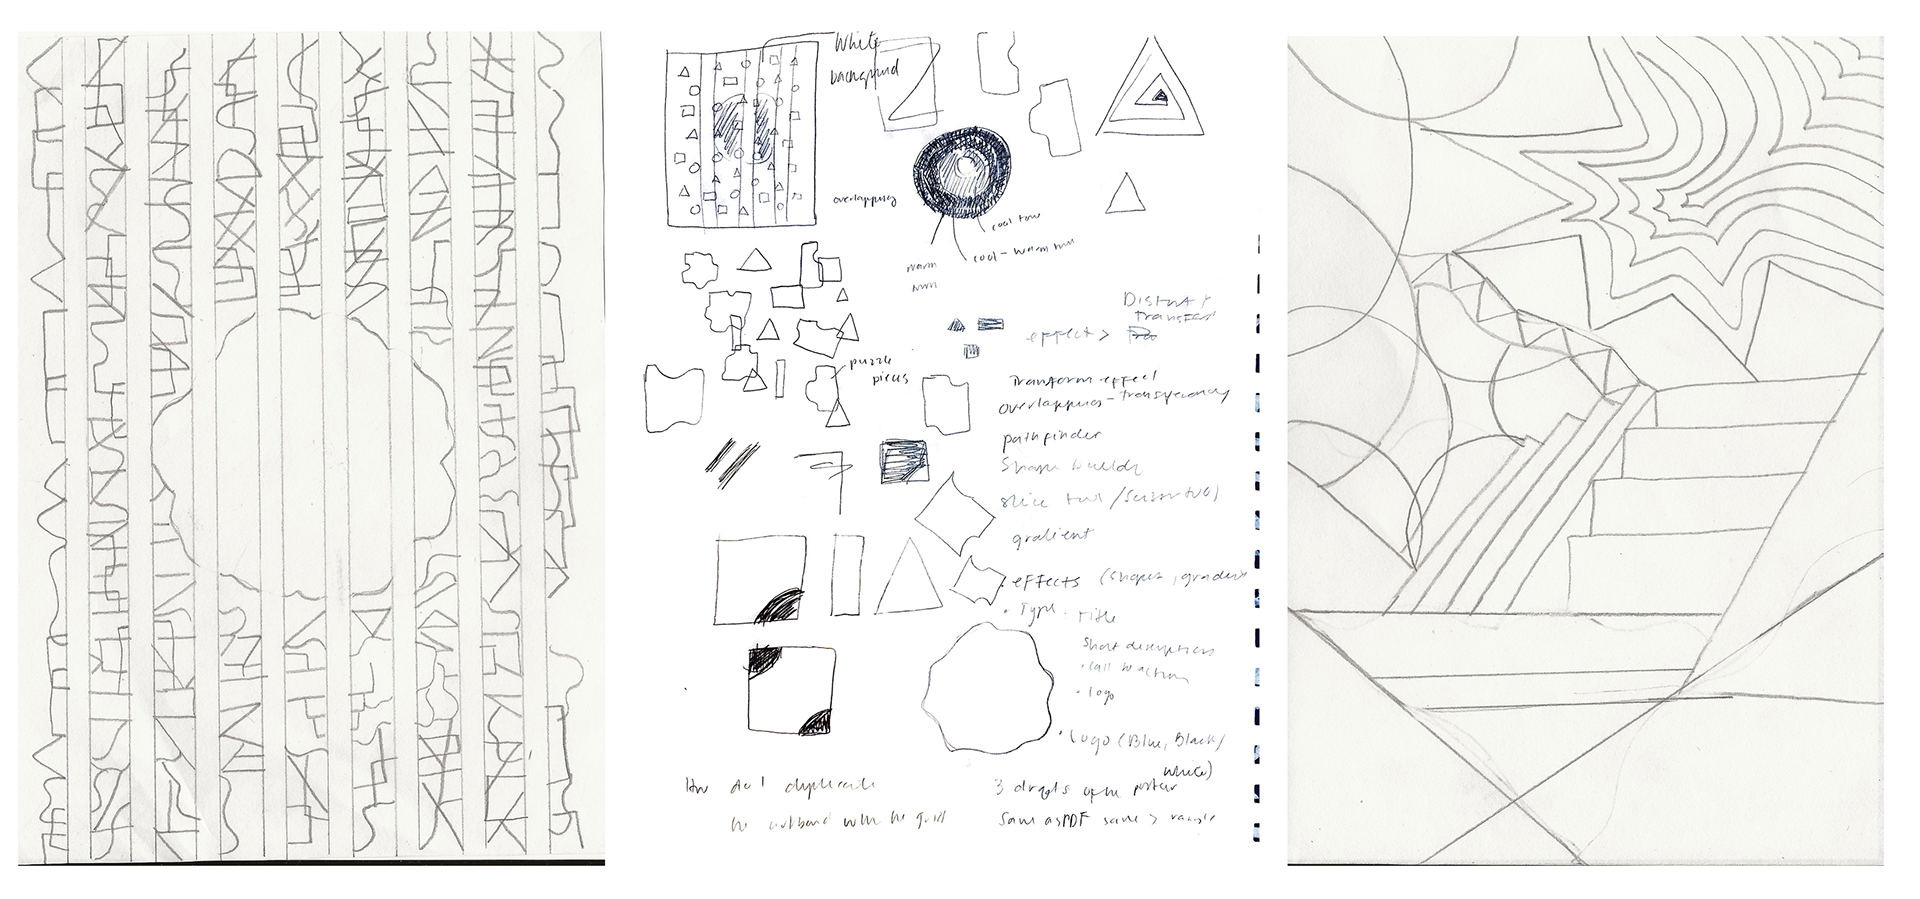 White
background
overlapping
cool tone
cool - warm tone
warm
Distort &
transform
effect >
puzzle
pieces
Transform effect
overlapping - transparency
pathfinder
Shape builder
slice tool / scissor tool
gradient
effects (shapes, gradient
• Type - title
short description
• call to action
• logo
• Logo (Blue, Black/
white)
How do I duplicate
the artboard with the grid
3 drafts of the poster
Save as PDF save >